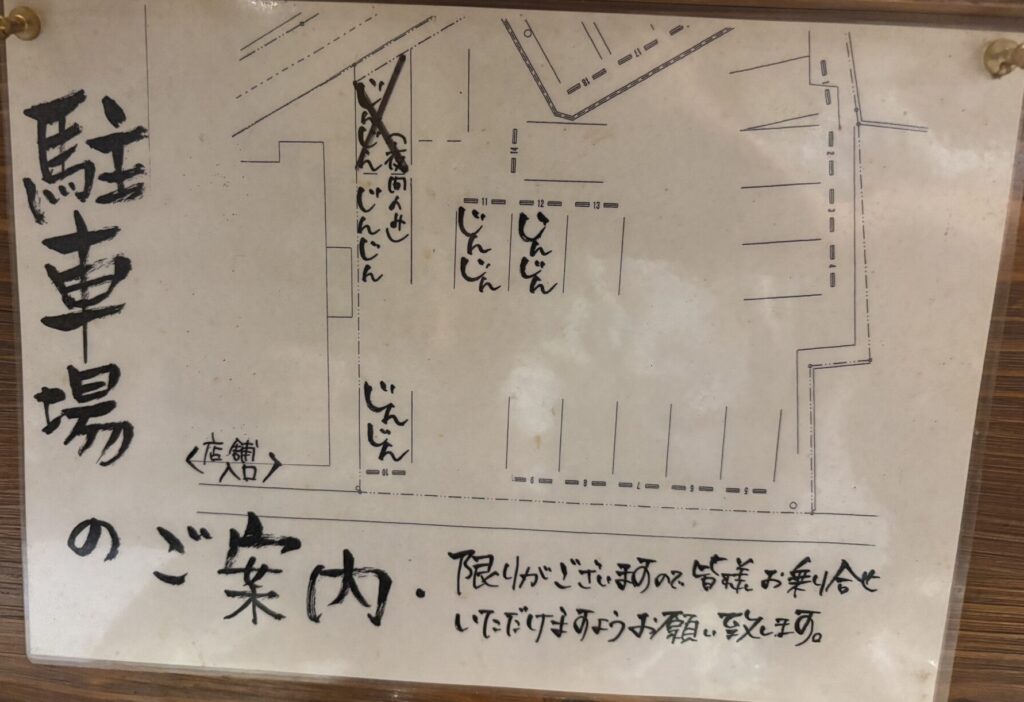 駐車場
のご案内.
じんじん
(夜間のみ)
じんじん
11 12 13
じんじん
じんじん
じんじん
10
9 8 7 6 5
16 17
〈店舗
入口〉
限りがございますので、皆様お乗り合せ
いただけますようお願い致します。